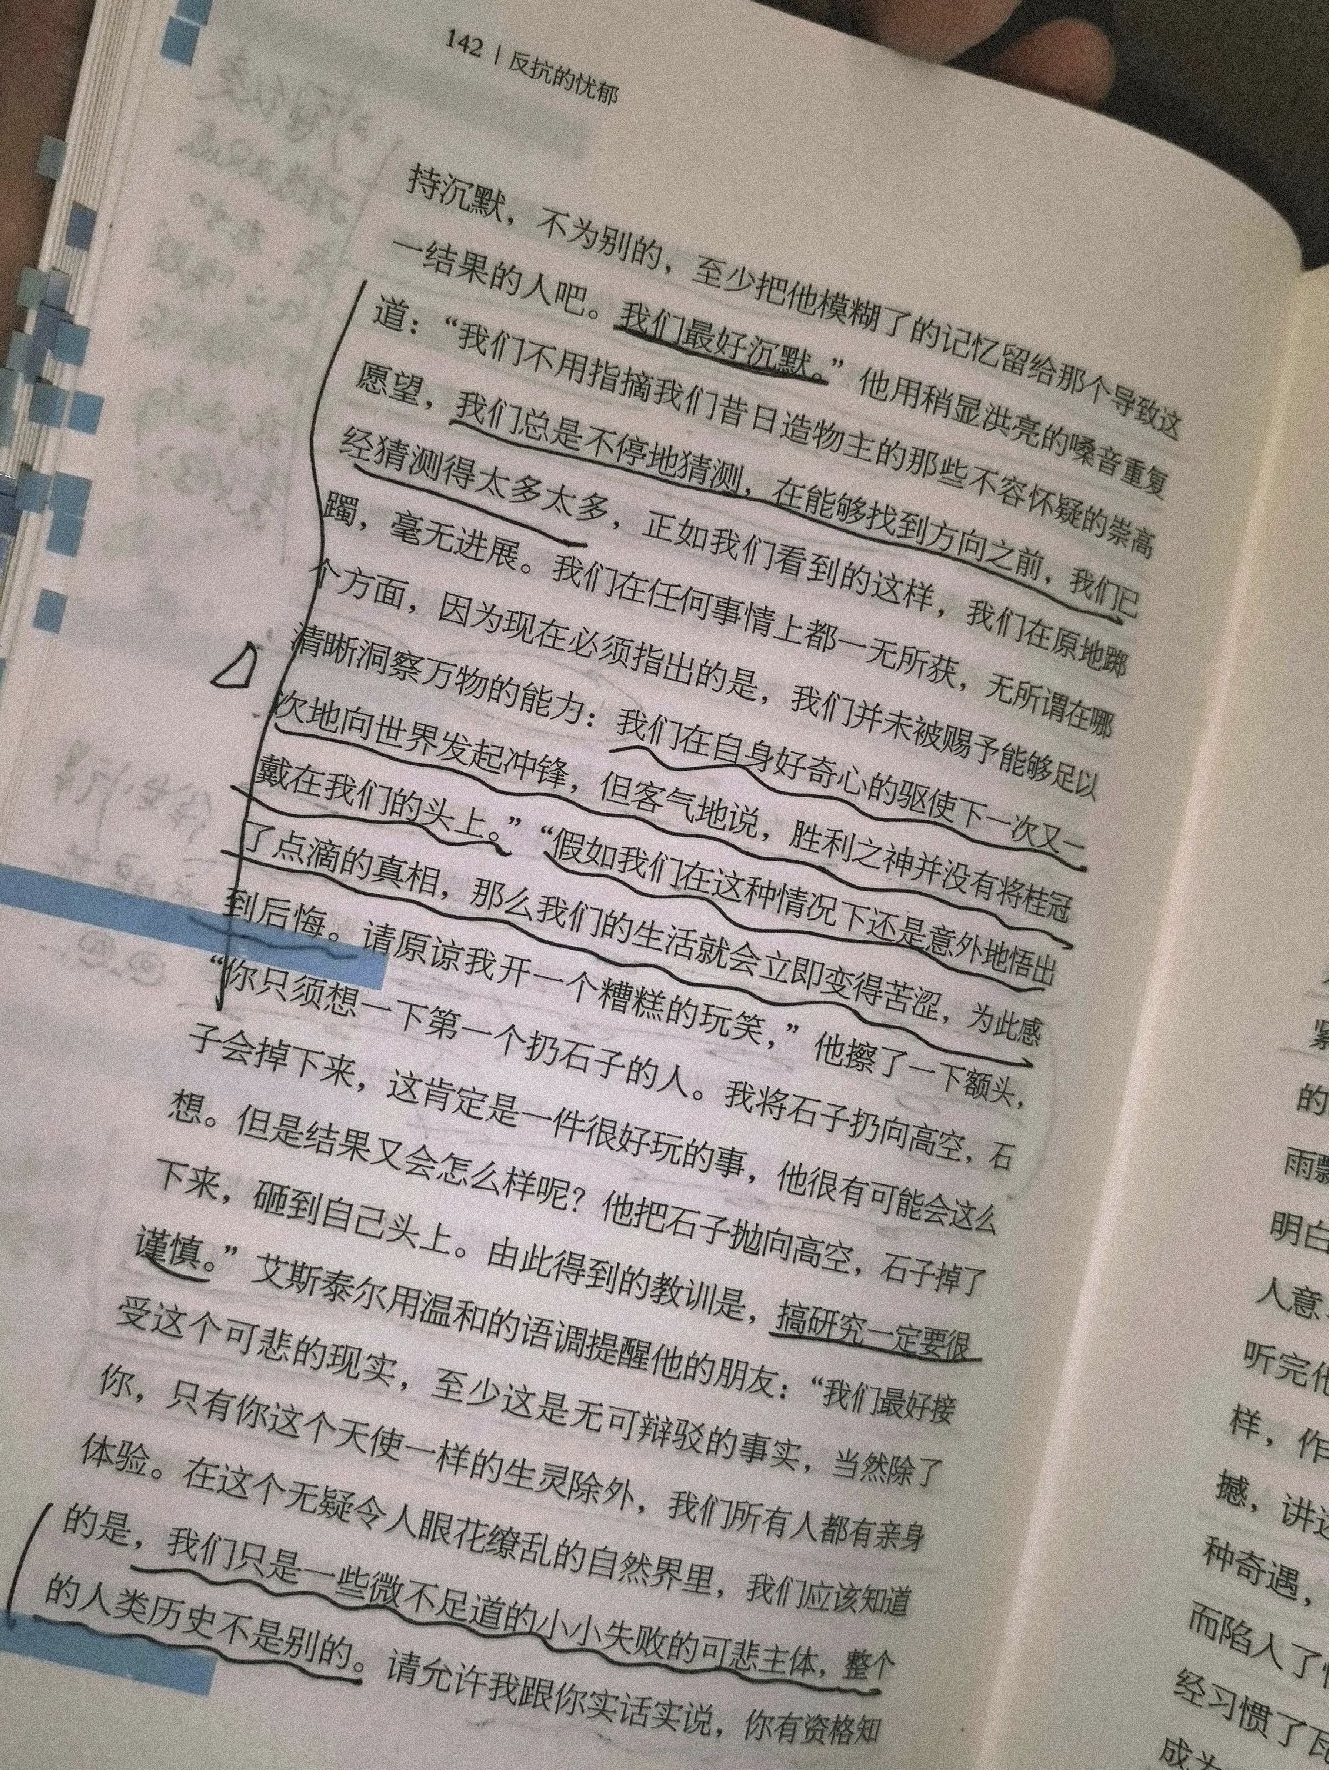 142 | 反抗的忧郁
持沉默，不为别的，至少把他模糊了的记忆留给那个导致这
一结果的人吧。我们最好沉默。”他用稍显洪亮的嗓音重复
道：“我们不用指摘我们昔日造物主的那些不容怀疑的崇高
愿望，我们总是不停地猜测，在能够找到方向之前，我们已
经猜测得太多太多，正如我们看到的这样，我们在原地踯
躅，毫无进展。我们在任何事情上都一无所获，无所谓在哪
个方面，因为现在必须指出的是，我们并未被赐予能够足以
清晰洞察万物的能力：我们在自身好奇心的驱使下一次又一
次地向世界发起冲锋，但客气地说，胜利之神并没有将桂冠
戴在我们的头上。”“假如我们在这种情况下还是意外地悟出
了点滴的真相，那么我们的生活就会立即变得苦涩，为此感
到后悔。请原谅我开一个糟糕的玩笑，”他擦了一下额头，
“你只须想一下第一个扔石子的人。我将石子扔向高空，石
子会掉下来，这肯定是一件很好玩的事，他很有可能会这么
想。但是结果又会怎么样呢？他把石子抛向高空，石子掉了
下来，砸到自己头上。由此得到的教训是，搞研究一定要很
谨慎。”艾斯泰尔用温和的语调提醒他的朋友：“我们最好接
受这个可悲的现实，至少这是无可辩驳的事实，当然除了
你，只有你这个天使一样的生灵除外，我们所有人都有亲身
体验。在这个无疑令人眼花缭乱的自然界里，我们应该知道
的是，我们只是一些微不足道的小小失败的可悲主体，整个
的人类历史不是别的。请允许我跟你实话实说，你有资格知
紧
的
雨飘
明白
人意
听完他
样，作
撼，讲述
种奇遇，
而陷入了
经习惯了瓦
成为